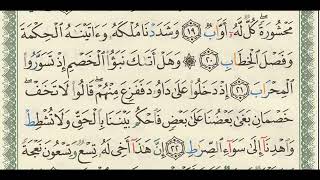 مَحْشُورَةً كُلٌّ لَّهُۥٓ أَوَّابٌ ١٩ وَشَدَدْنَا مُلْكَهُۥ وَءَاتَيْنَٰهُ ٱلْحِكْمَةَ
وَفَصْلَ ٱلْخِطَابِ ٢٠ ۞ وَهَلْ أَتَىٰكَ نَبَؤُا۟ ٱلْخَصْمِ إِذْ تَسَوَّرُوا۟
ٱلْمِحْرَابَ ٢١ إِذْ دَخَلُوا۟ عَلَىٰ دَاوُۥدَ فَفَزِعَ مِنْهُمْ ۖ قَالُوا۟ لَا تَخَفْ ۖ
خَصْمَانِ بَغَىٰ بَعْضُنَا عَلَىٰ بَعْضٍ فَٱحْكُم بَيْنَنَا بِٱلْحَقِّ وَلَا تُشْطِطْ
وَٱهْدِنَآ إِلَىٰ سَوَآءِ ٱلصِّرَٰطِ ٢٢ إِنَّ هَٰذَآ أَخِى لَهُۥ تِسْعٌ وَتِسْعُونَ نَعْجَةً